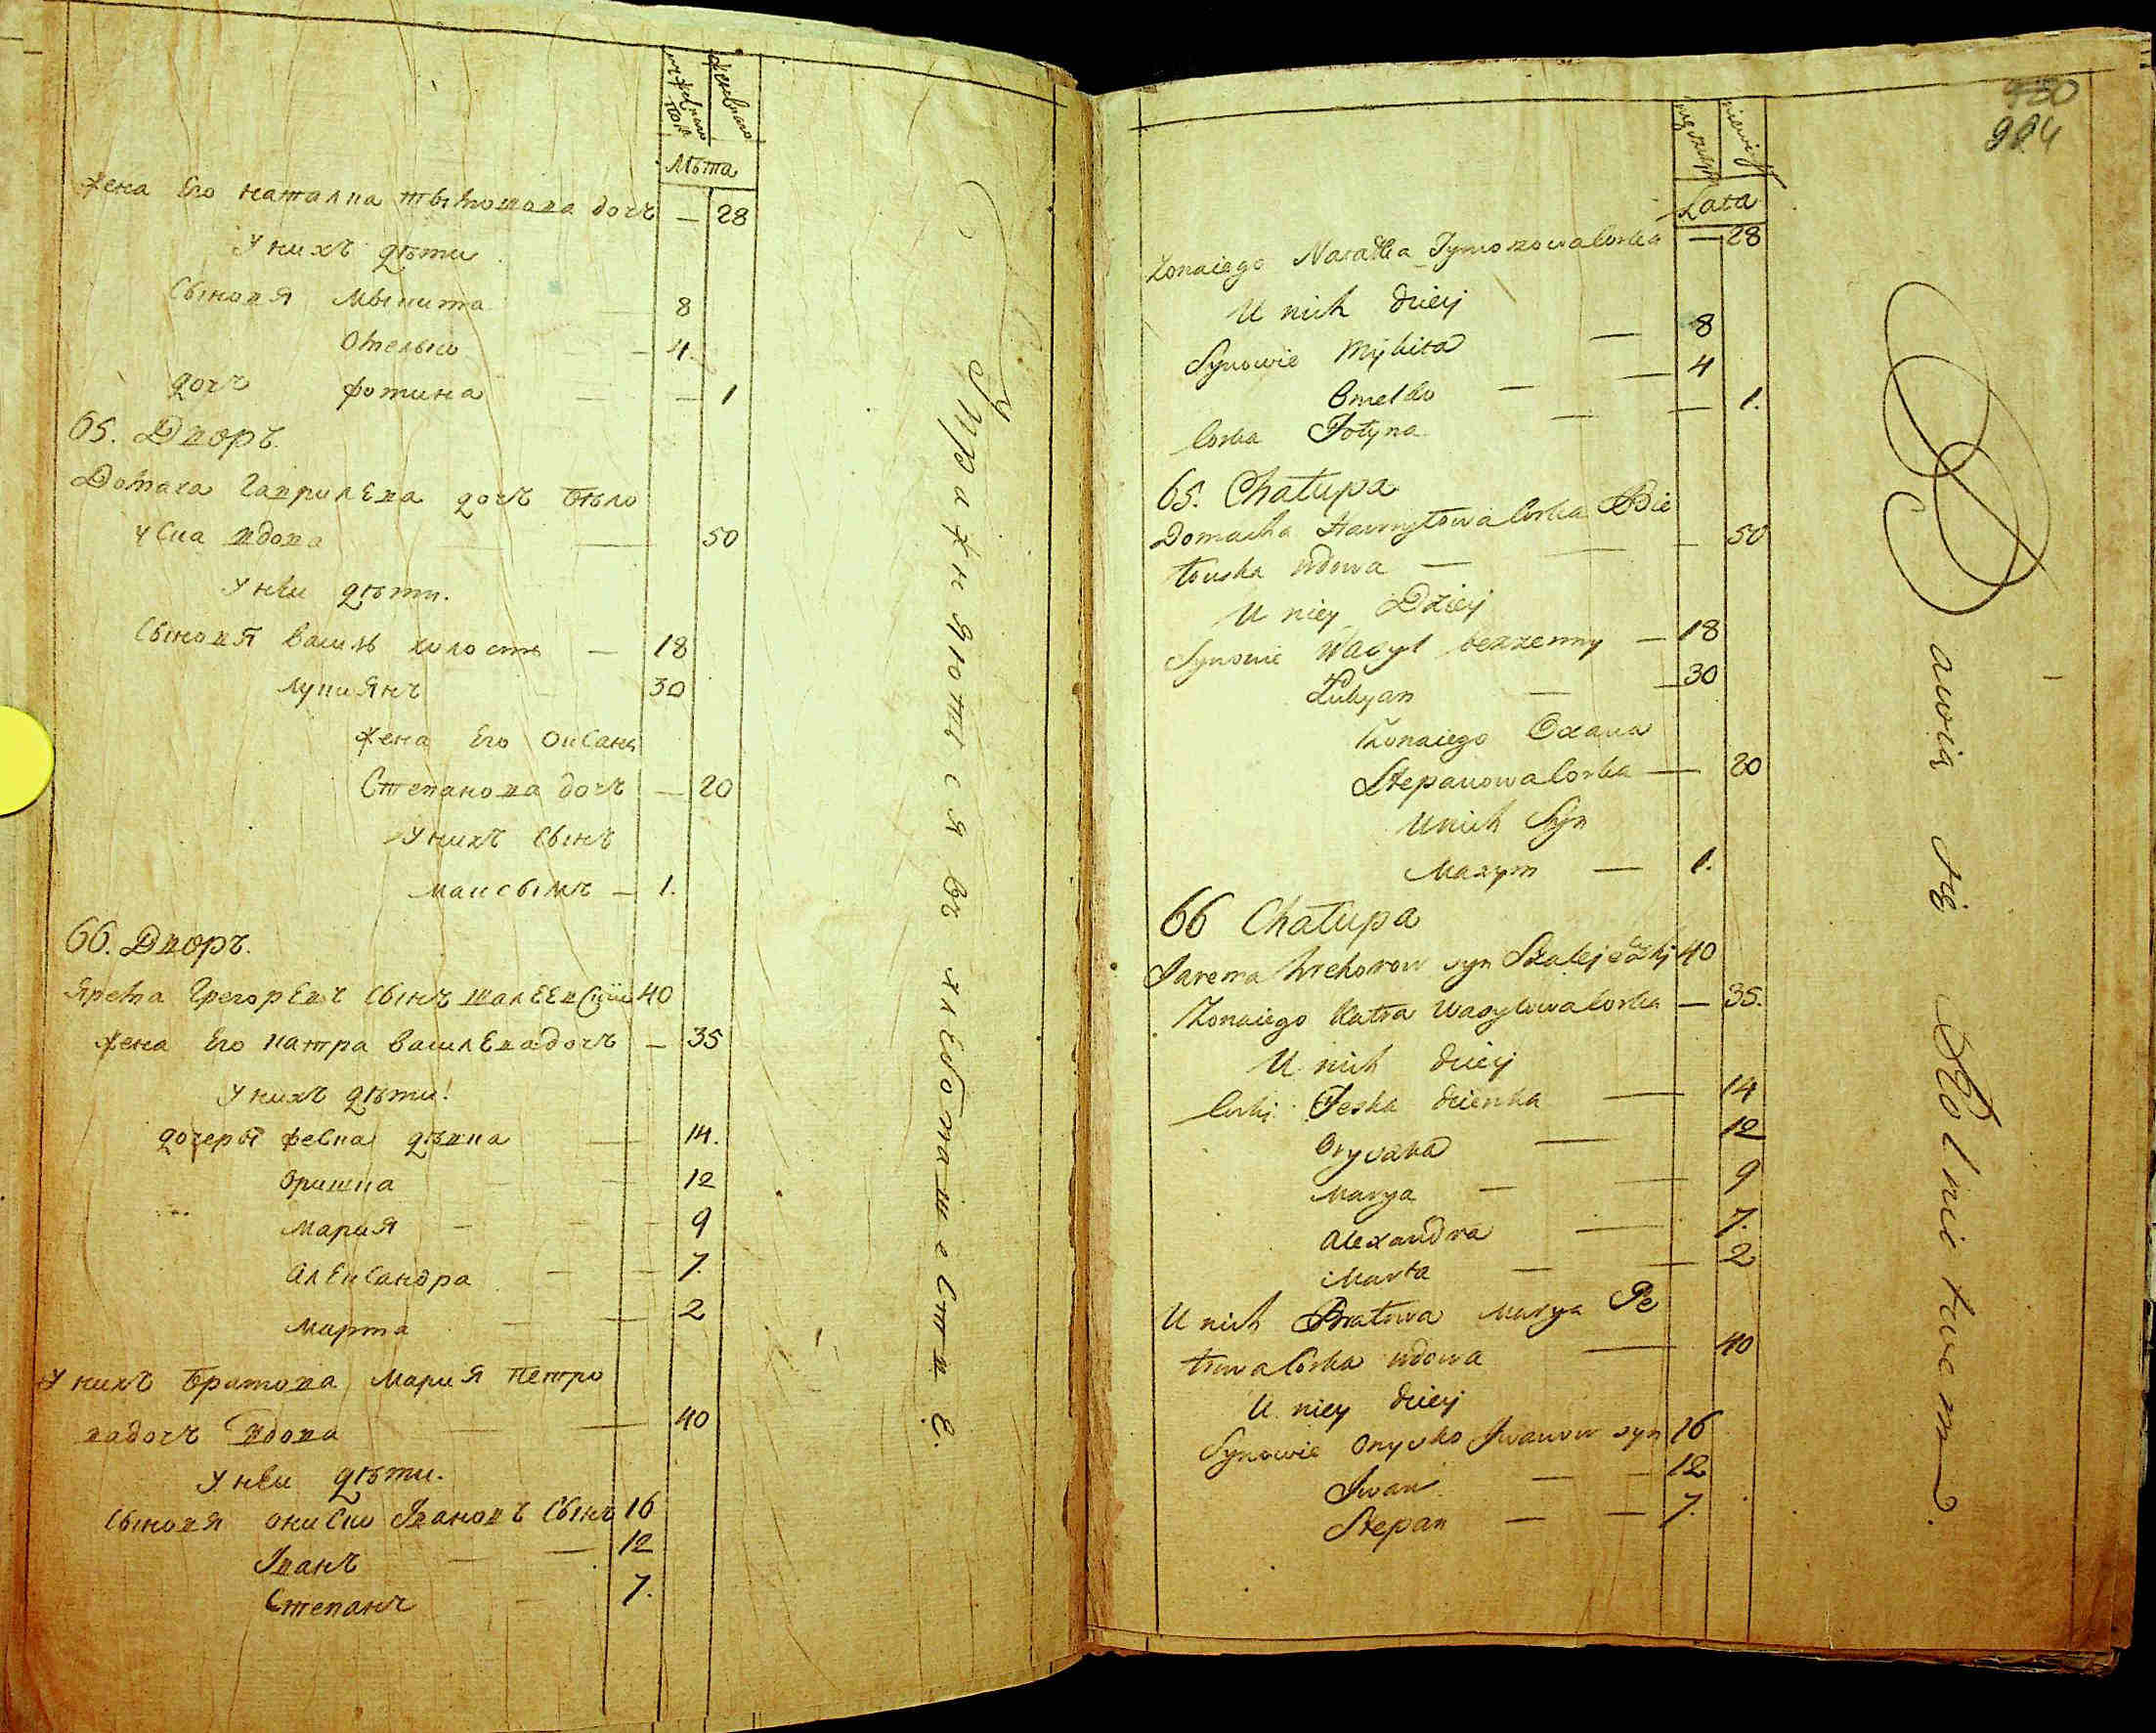 мужеска пола
женска
Лѣта
жена Его наталка тымошова дочъ — 28
У нихъ дѣти
Сыновя Мыкита 8
Омелько — 4.
дочъ фотина — — 1
65. Дворъ.
Домаха Гаврилева дочъ Бѣло
уска вдова — 50
У неи дѣти.
Сыновя Василь холостъ — 18
Лукиянъ 30
жена Его Оксана
Степанова дочъ — 20
У нихъ Сынъ
Максымъ — 1.
66. Дворъ.
Ярема Грегоревъ Сынъ шалеевскiи 40
жена Его катра василева дочъ — 35
У нихъ дѣти!
дочеры феска дѣвка — 14.
Оришка 12
Мария — — 9
Александра — — 7.
Марта — 2
У нихъ Братова Мария Петро
вадочъ вдова — 40
У неи дѣти.
Сыновя Ониско Iвановъ Сынъ 16
Iванъ — 12
Степанъ 7.
Упражняются въ хлебопашестве.
930
904
męzkiey
niewie
Lata
Zonaiego Natalka Tymoszowa Corka — 28
U nich dzieij
Synowie Mykita — 8
Omelko — — 4
Corka Fotyna — — 1.
65. Chałupa
Domacha Hawryłowa Corka Bie
łouska wdowa — — 50
U niey Dzieij
Synowie Wasyl bezzenny — 18
Łukyan — — 30
Zonaiego Oxana
Stepanowa Corka — 20
U nich Syn
Maxym — 1.
66 Chałupa
Jarema Hrehorow syn Szalejewskj 40
Zonaiego Katra Wasylowa Corka — 35.
U nich dzieij
Corkj Feska dziewka — 14
Oryszka — 12
Marya — — 9
Alexandra — 7.
Marta — — 2
U nich Bratowa Marya Pe
trowa Corka wdowa — 40
U niey dzieij
Synowie Onysko Jwanow syn 16
Jwan — — 12
Stepan — — 7.
Bawią się Rolnictwem.